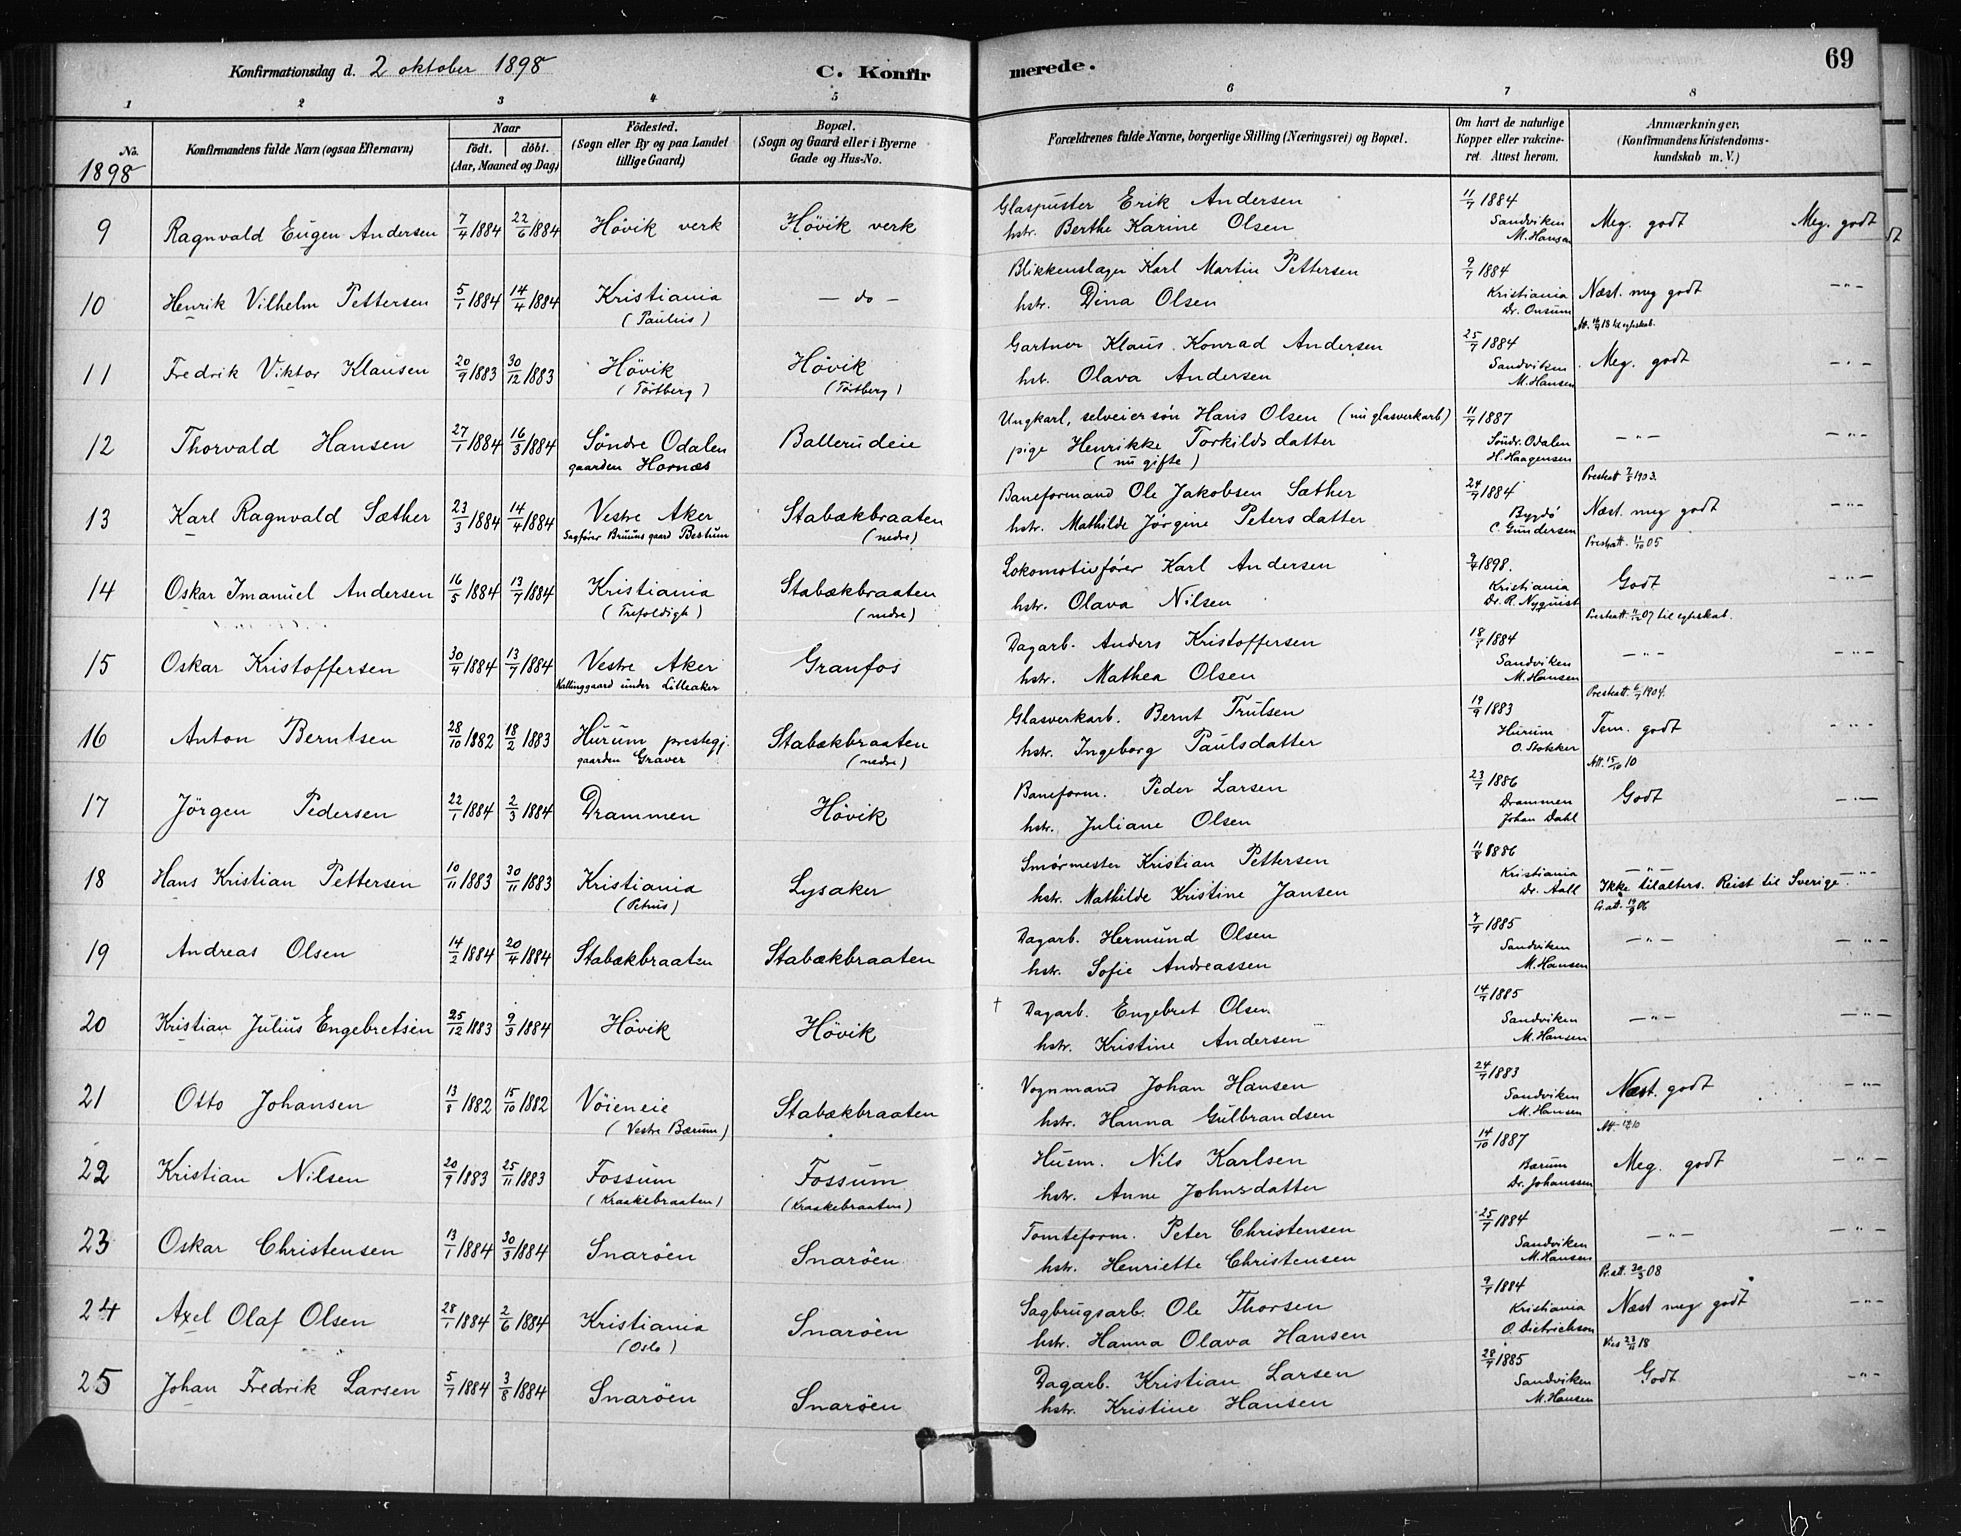 Konfirmationsdag d. 2 oktober 1898
C. Konfir merede.
69
1 2 3 4 5 6 7 8
No.
1898
Konfirmandens fulde Navn (ogsaa Efternavn)
Naar
födt. döbt.
(Aar, Maaned og Dag)
Födested.
(Sogn eller By og paa Landet
tillige Gaard)
Bopæl.
(Sogn og Gaard eller i Byerne
Gade og Hus-No.
Forældrenes fulde Navne, borgerlige Stilling (Næringsvei) og Bopæl.
Om havt de naturlige
Kopper eller vakcine-
ret. Attest herom.
Anmærkninger.
(Konfirmandens Kristendoms-
kundskab m. V.)
9 Ragnvald Eugen Andersen 7/4 1884 22/6 1884 Hövik verk Hövik verk
Glaspuster Erik Andersen
hstr. Berthe Karine Olsen
11/7 1884
Sandviken
M. Hansen
Meg. godt Meg. godt
10 Henrik Vilhelm Pettersen 5/1 1884 14/4 1884 Kristiania
(Paulus)
— do —
Blikkenslager Karl Martin Pettersen
hstr. Dina Olsen
9/7 1884
Kristiania
Dr. Onsum
Næst. meg godt — " —
11 Fredrik Viktor Klausen 20/9 1883 30/12 1883 Hövik
(Törtberg)
Hövik
(Törtberg)
Gartner Klaus Konrad Andersen
hst. Olava Andersen
25/7 1884
Sandviken
M. Hansen
Meg. godt — " —
12 Thorvald Hansen 27/1 1884 16/3 1884 Söndre Odalen
gaarden Hornæs
Ballerudeie
Ungkarl, selveiersön Hans Olsen (nu glasverkarb)
pige Henrikke Torkildsdatter
(nu gifte)
11/7 1887
Söndr. Odalen
H. Haagensen
— " — — " —
Prestatt 7/5 1903.
13 Karl Ragnvald Sæther 23/3 1884 14/4 1884 Vestre Aker
Sagförer Bruuns gaard Bestum
Stabækbraaten
(nedre)
Baneformand Ole Jakobsen Sæther
hstr. Mathilde Jörgine Petersdatter
24/7 1884
Bygdö
C. Gundersen
Næst. meg godt — " —
Prestatt. 11/10 05
14 Oskar Imanuel Andersen 16/5 1884 13/7 1884 Kristiania
(Trefoldigh)
Stabækbraaten
(nedre)
Lokomotivförer Karl Andersen
hstr. Olava Nilsen
1898.
Kristiania
Dr. R. Nyquist
Godt — " —
15 Oskar Kristoffersen 30/4 1884 13/7 1884 Vestre Aker
Kattinggaard under Lilleaker
Granfos
Dagarb. Anders Kristoffersen
hstr. Mathea Olsen
18/7 1884
Sandviken
M. Hansen
— " — — " —
Prestatt. 6/7 1904.
16 Anton Berntsen 28/10 1882 18/2 1883 Hurum prestegj.
gaarden Graver
Stabækbraaten
(nedre)
Glasverkarb. Bernt Trulsen
hstr. Ingeborg Paulsdatter
19/9 1883
Hurum
O. Stokker
Tem. godt " "
Att. 15/10 10
17 Jörgen Pedersen 22/1 1884 2/3 1884 Drammen Hövik
Baneform. Peder Larsen
hstr. Juliane Olsen
23/7 1886
Drammen
Johan Dahl
Godt — " —
18 Hans Kristian Pettersen 10/11 1883 30/11 1883 Kristiania
(Petrus)
Lysaker
Smörmester Kristian Pettersen
hstr. Mathilde Kristine Jansen
11/8 1886
Kristiania
Dr. Aall
— " — — " —
Ikke tilalters. Reist til Sverige.
Pr.att. 19/9 06
19 Andreas Olsen 14/2 1884 20/4 1884 Stabækbraaten Stabækbraaten
Dagarb. Hermund Olsen
hstr. Sofie Andreassen
7/7 1885
Sandviken
M. Hansen
— " — — " —
20 Kristian Julius Engebretsen 25/12 1883 9/3 1884 Hövik Hövik
† Dagarb. Engebret Olsen
hstr. Kristine Andersen
14/7 1885
Sandviken
M. Hansen
— " — — " —
21 Otto Johansen 13/8 1882 15/10 1882 Vöieneie
(Vestre Bærum)
Stabækbraaten
Vognmand Johan Hansen
hstr. Hanna Gulbrandsen
24/7 1883
Sandviken
M. Hansen
Næst. godt — " —
22 Kristian Nilsen 20/9 1883 25/11 1883 Fossum
(Kraakebraaten)
Fossum
(Kraakebraaten)
Husm. Nils Karlsen
hstr. Anne Johnsdatter
14/10 1887
Bærum
Dr. Johanssen
Meg. godt — " —
23 Oskar Christensen 13/1 1884 30/3 1884 Snaröen Snaröen
Tomteform. Peter Christensen
hstr. Henriette Christensen
25/7 1884
Sandviken
M. Hansen
— " — — " —
Pr.att. 30/3 08
24 Axel Olaf Olsen 28/1 1884 2/6 1884 Kristiania
(Oslo)
Snaröen
Sagbrugsarb. Ole Thorsen
hstr. Hanna Olava Hansen
9/7 1884
Kristiania
O. Dietrichson
Næst meg godt — " —
25 Johan Fredrik Larsen 5/7 1884 3/8 1884 Snaröen Snaröen
Dagarb. Kristian Larsen
hstr. Kristine Hansen
28/7 1885
Sandviken
M. Hansen
Godt — " —